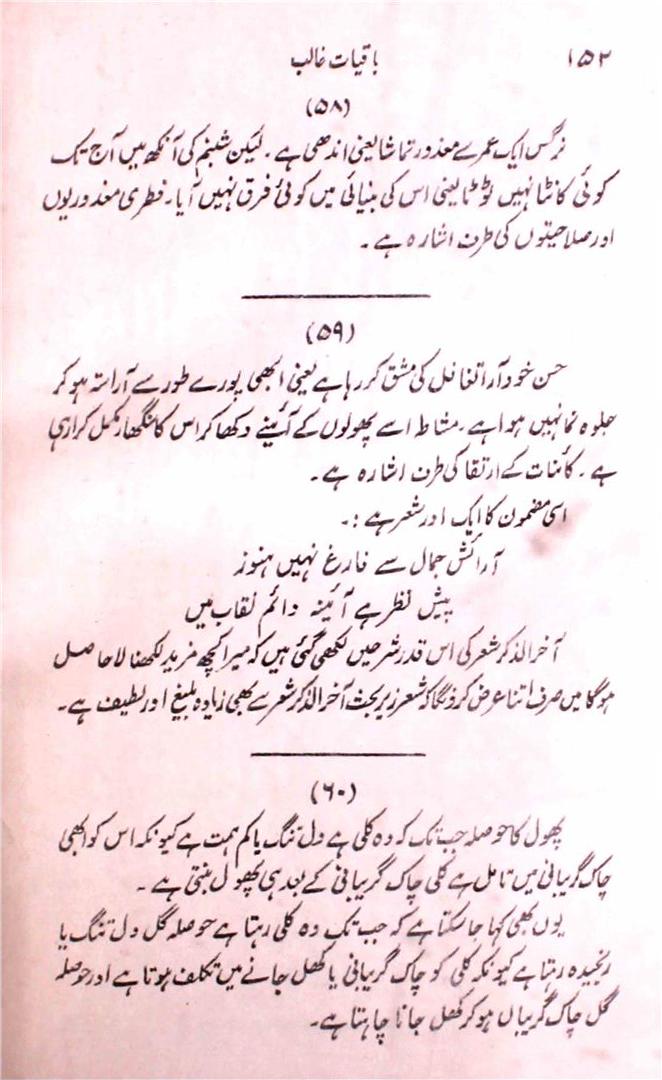 ۱۵۲ باقیات غالب
(۵۸)
نرگس ایک عمر سے معذور تماشا یعنی اندھی ہے۔ لیکن شبنم کی آنکھ میں آج تک
کوئی کانٹا نہیں ٹوٹا یعنی اس کی بینائی میں کوئی فرق نہیں آیا۔ فطری معذوریوں
اور صلاحیتوں کی طرف اشارہ ہے۔
(۵۹)
حسن خود آرا تغافل کی مشق کر رہا ہے یعنی ابھی پورے طور سے آراستہ ہو کر
جلوہ نما نہیں ہوا ہے۔ مشاطہ اسے پھولوں کے آئینے دکھا کر اس کا نکھار مکمل کرا رہی
ہے۔ کائنات کے ارتقا کی طرف اشارہ ہے۔
اسی مضمون کا ایک اور شعر ہے :۔
آرائش جمال سے فارغ نہیں ہنوز
پیش نظر ہے آئینہ دائم نقاب میں
آخر الذکر شعر کی اس قدر شرحیں لکھی گئی ہیں کہ میرا کچھ مزید لکھنا لاحاصل
ہوگا میں صرف اتنا عرض کرونگا کہ شعر زیر بحث آخر الذکر شعر سے بھی زیادہ بلیغ اور لطیف ہے۔
(۶۰)
پھول کا حوصلہ جب تک کہ وہ کلی ہے دل تنگ یا کم ہمت ہے کیونکہ اس کو ابھی
چاک گریبانی میں تامل ہے کلی چاک گریبانی کے بعد ہی پھول بنتی ہے۔
یوں بھی کہا جا سکتا ہے کہ جب تک وہ کلی رہتا ہے حوصلہ گل دل تنگ یا
رنجیدہ رہتا ہے کیونکہ کلی کو چاک گریبانی یا کھل جانے میں تکلف ہوتا ہے اور حوصلہ
گل چاک گریباں ہو کر کھل جانا چاہتا ہے۔